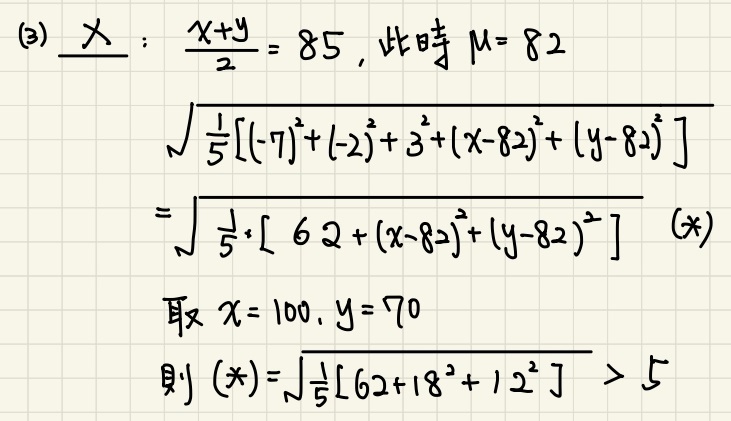 (3) X : (x+y)/2 = 85, 此時 μ = 82
√(1/5[(-7)²+(-2)²+3²+(x-82)²+(y-82)²])
= √(1/5·[62+(x-82)²+(y-82)²]) (*)
取 x=100, y=70
則 (*)=√(1/5[62+18²+12²]) > 5